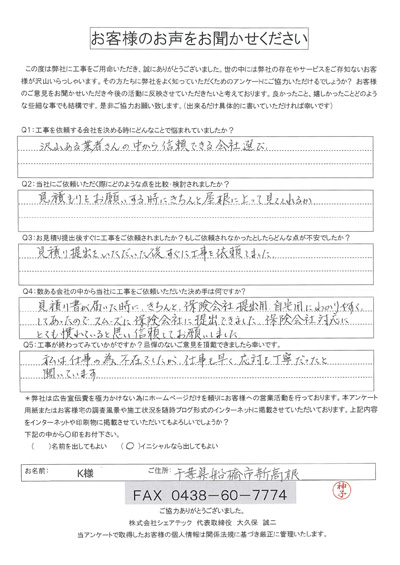 お客様のお声をお聞かせください
この度は弊社に工事をご用命いただき、誠にありがとうございました。世の中には弊社の存在やサービスをご存知ないお客
様が沢山いらっしゃいます。その方たちに弊社をよく知っていただくためのアンケートにご協力いただけるでしょうか？ お客様
のご意見をお聞かせいただき今後の活動に反映させていただきたいと考えております。良かったこと、嬉しかったことどのよう
な些細な事でも結構です。是非ご協力お願い致します。（出来るだけ具体的に書いていただければ幸いです）
Q1：工事を依頼する会社を決める時にどんなことで悩まれていましたか？
沢山ある業者さんの中から信頼できる会社選び
Q2：当社にご依頼いただく際にどのような点を比較・検討されましたか？
見積もりをお願いする時にきちんと屋根に上って見てくれるか
Q3：お見積り提出後すぐに工事をご依頼されましたか？もしご依頼されなかったとしたらどんな点が不安でしたか？
見積り提出をいただいた後すぐに工事を依頼しました
Q4：数ある会社の中から当社に工事をご依頼いただいた決め手は何ですか？
見積り書が届いた時に、きちんと、保険会社提出用 自宅用にわかりやすく
してあったので スムーズに保険会社に提出できました。保険会社対応に
とても慣れていると思い信頼してお願いしました
Q5：工事が終わってみていかがですか？忌憚のないご意見を頂戴できましたら幸いです。
私は仕事の為、不在でしたが、仕事も早く、応対も丁寧だったと
聞いています
＊弊社は広告宣伝費を極力かけない為にホームページだけを頼りにお客様への営業活動を行っております。本アンケート
用紙またはお客様宅の調査風景や施工状況を随時ブログ形式のインターネットに掲載させていただいております。上記内容
をインターネットや印刷物に掲載させていただいてもよろしいでしょうか？
下記の中から〇印をお付下さい。
（　）名前を出してもよい　（〇）イニシャルなら出してもよい
お名前：　K様　ご住所：千葉県船橋市新高根
FAX 0438-60-7774
ご協力ありがとうございました。
株式会社シェアテック 代表取締役 大久保 誠二
当アンケートで取得したお客様の個人情報は関係法規に基づき厳正に管理いたします。